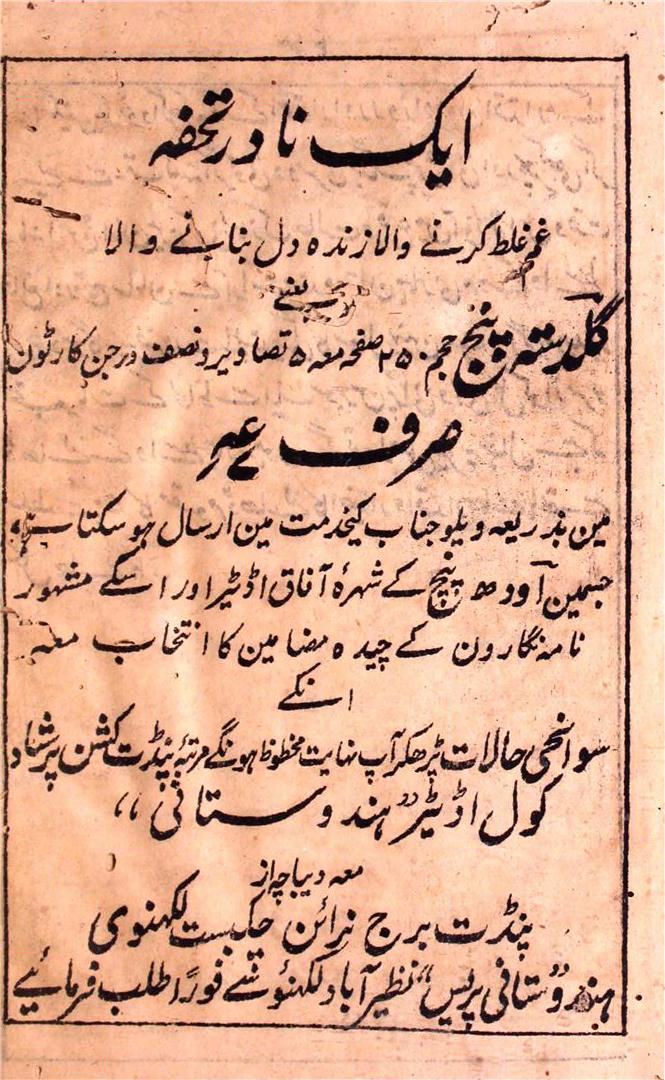 ایک نادر تحفہ
غم غلط کرنے والا زندہ دل بنانے والا
یعنے
گلدستہ پنچ حجم ۲۵۰ صفحہ معہ ۵ تصاویر و نصف درجن کارٹون
صرف
مین بذریعہ ویلو جناب کیخدمت مین ارسال ہو سکتا ہے،
جسمین آودھ پنچ کے شہرۂ آفاق اڈٹیر اور اسکے مشہور
نامہ نگارون کے چیدہ مضامین کا انتخاب معہ
انکے
سوانحی حالات پڑھکر آپ نہایت محظوظ ہونگے مرتبہٴ پنڈت کشن پرشاد
کول اڈٹیر "ہندوستانی"
معہ دیباچہ از
پنڈت برج نرائن چکبست لکھنوی
ہندوستانی پریس" نظیر آباد لکھنؤ سے فوراً طلب فرمائیے